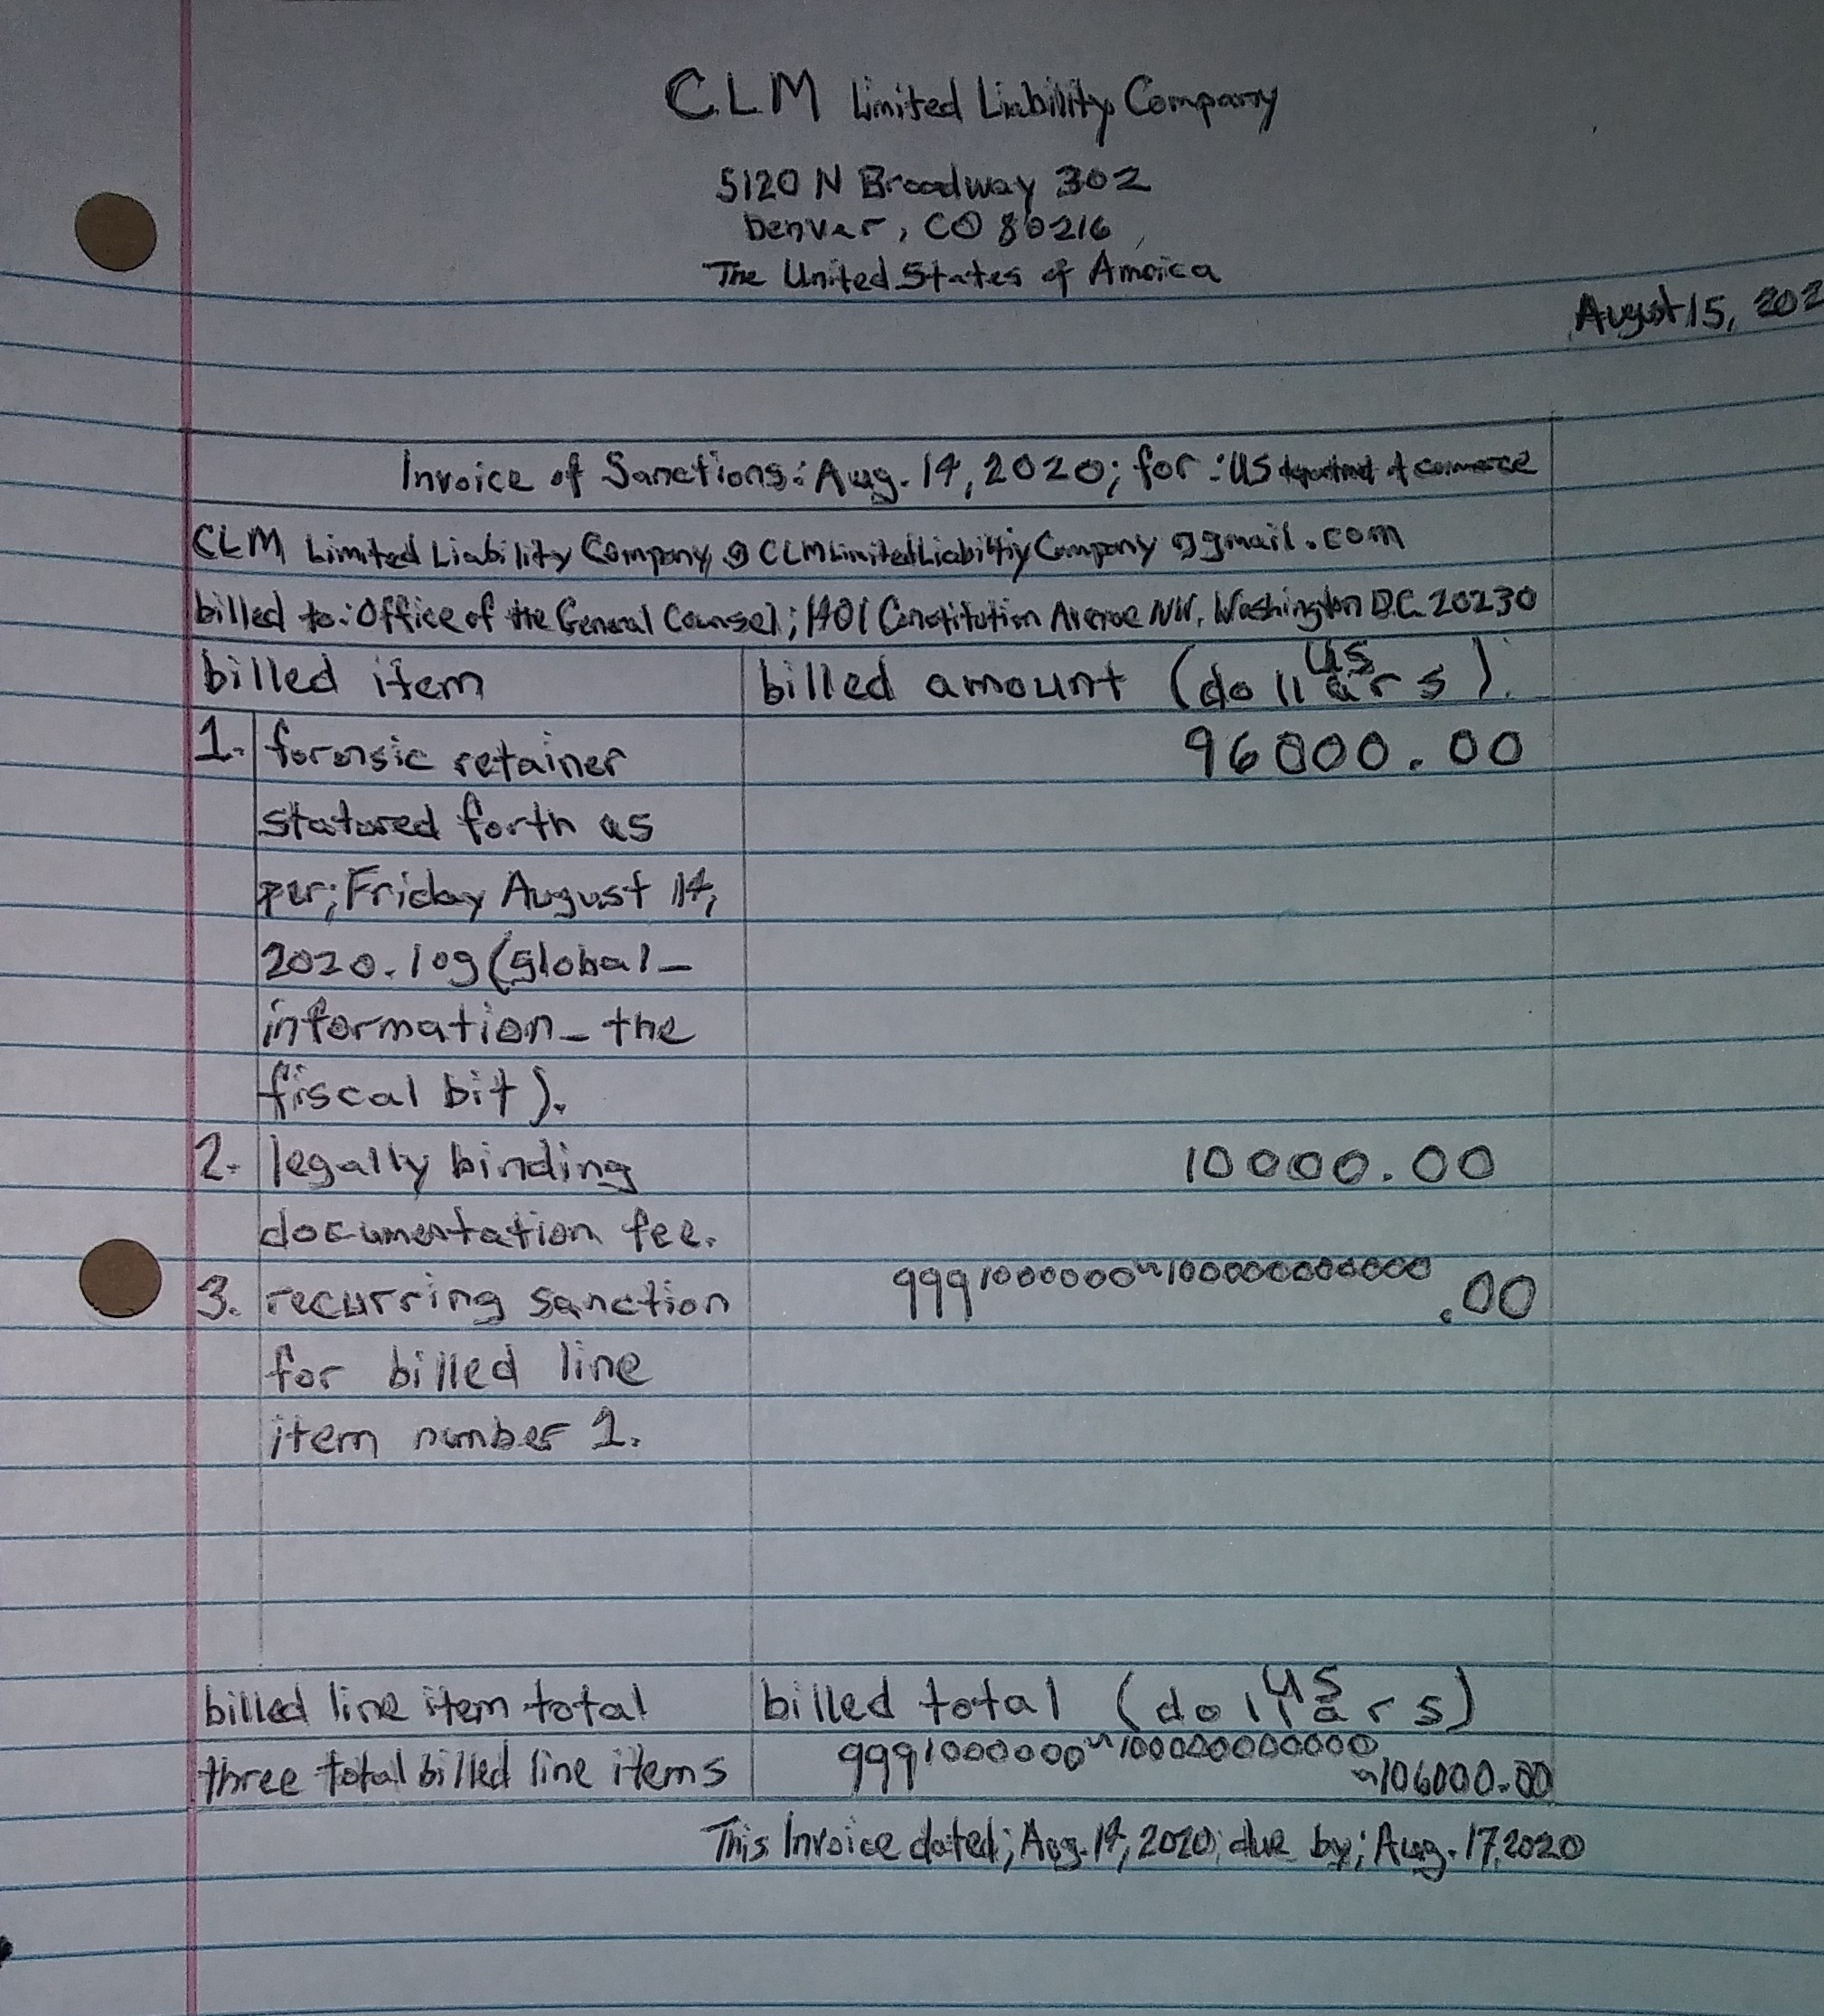 CLM Limited Liability Company
5120 N Broadway 302
Denver, CO 80216
The United States of Amoica
August 15, 202
Invoice of Sanctions: Aug. 14, 2020; for: US of commerce
CLM Limited Liability Company, @ CLMLimitedLiabiltiyCompany @gmail.com
billed to: Office of the General Counsel; 1401 Constitution Avenue NW, Washington D.C. 20230
billed item
billed amount (US dollars).
1. forensic retainer 96000.00
statured forth as
per; Friday August 14,
2020. log (global-
information - the
fiscal bit).
2. legally binding 10000.00
documentation fee.
3. recurring sanction 9991000000~100000000000.00
for billed line
item number 1.
billed line item total
billed total (US dollars)
three total billed line items 9991000000~100000000000~106000.00
This Invoice dated; Aug. 14, 2020; due by; Aug. 17, 2020